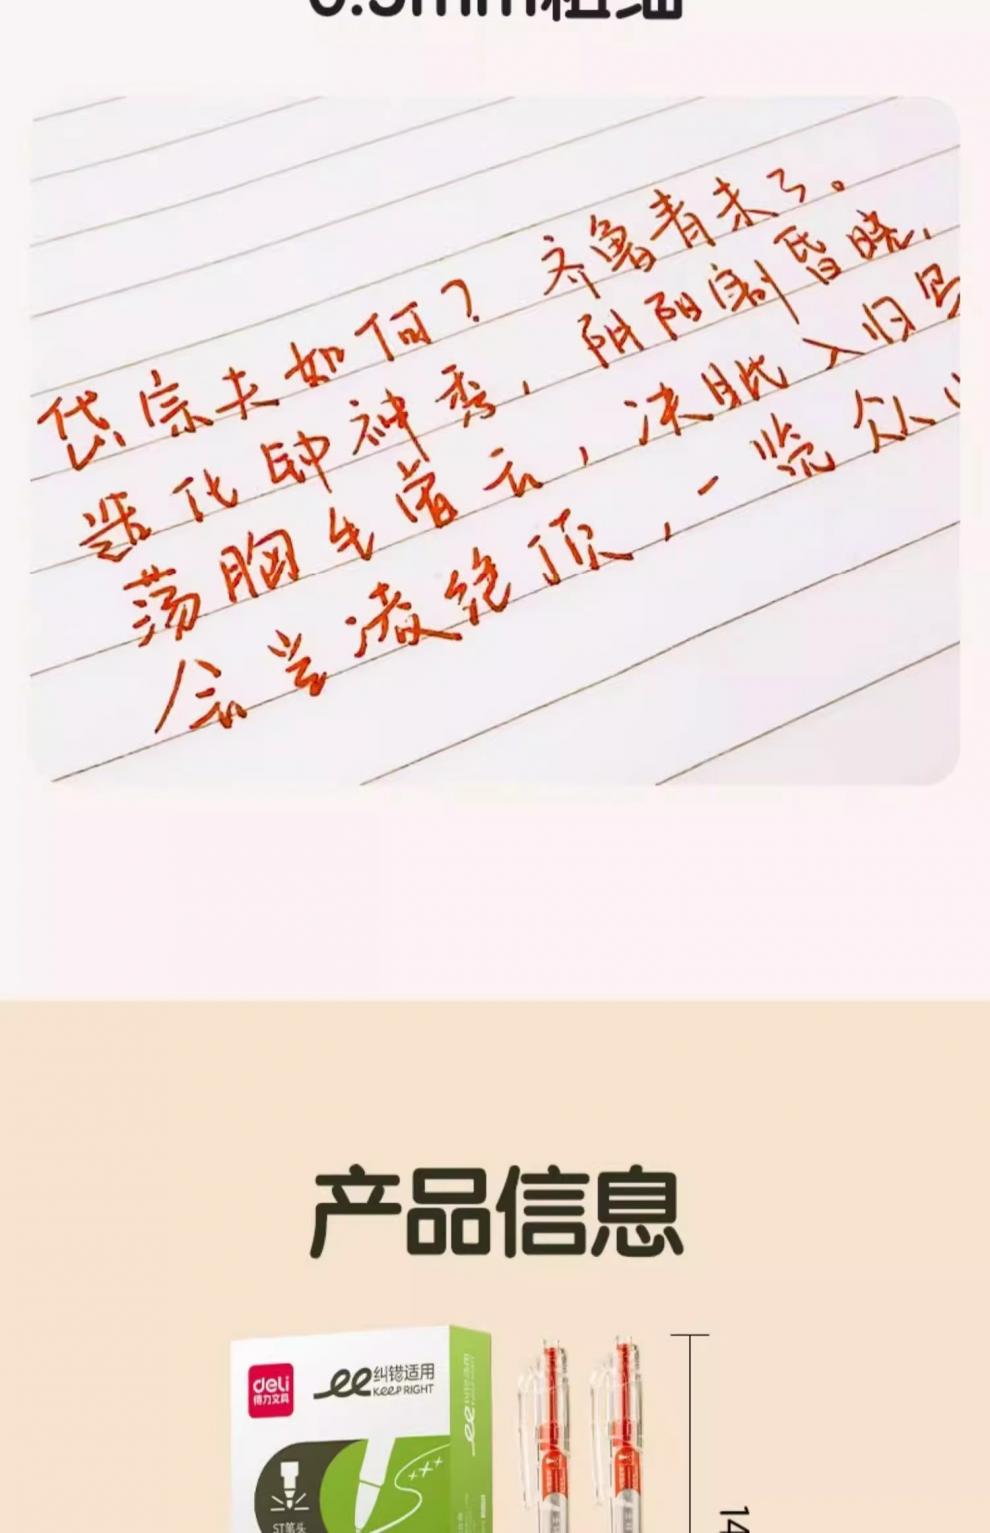 0.5mm粗细
岱宗夫如何？齐鲁青未了。
造化钟神秀，阴阳割昏晓，
荡胸生曾云，决眦入归鸟
会当凌绝顶，一览众小
产品信息
deli
得力文具
纠错适用
KEEP RIGHT
ST笔头
14